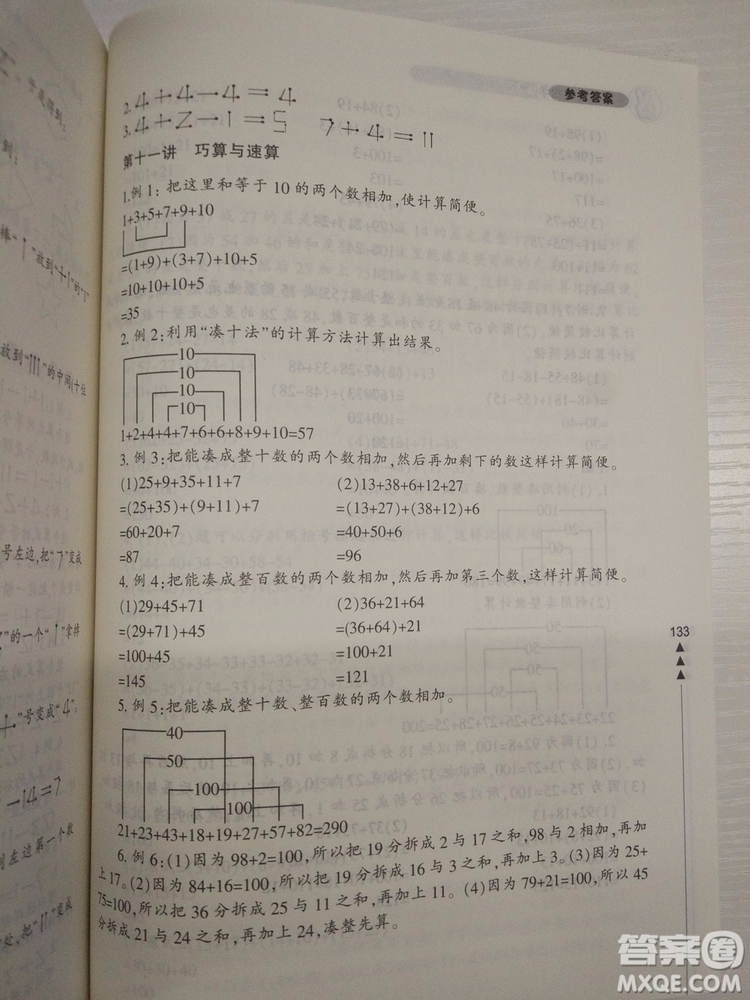 参考答案
2. 4+4-4=4
3. 4+2-1=5 7+4=11
第十一讲 巧算与速算
1.例1:把这里和等于10的两个数相加,使计算简便。
1+3+5+7+9+10
=(1+9)+(3+7)+10+5
=10+10+10+5
=35
2.例2:利用“凑十法”的计算方法计算出结果。
10
10
10
10
1+2+4+4+7+6+6+8+9+10=57
3.例3:把能凑成整十数的两个数相加,然后再加剩下的数这样计算简便。
(1)25+9+35+11+7 (2)13+38+6+12+27
=(25+35)+(9+11)+7 =(13+27)+(38+12)+6
=60+20+7 =40+50+6
=87 =96
4.例4:把能凑成整百数的两个数相加,然后再加第三个数,这样计算简便。
(1)29+45+71 (2)36+21+64
=(29+71)+45 =(36+64)+21
=100+45 =100+21
=145 =121
5.例5:把能凑成整十数、整百数的两个数相加。
40
50
100
100
21+23+43+18+19+27+57+82=290
6.例6:(1)因为98+2=100,所以把19分拆成2与17之和,98与2相加,再加
上17。(2)因为84+16=100,所以把19分拆成16与3之和,再加上3。(3)因为25+
75=100,所以把36分拆成25与11之和,再加上11。(4)因为79+21=100,所以45
分拆成21与24之和,再加上24,凑整先算。
133
棒“1”放到“+1”的“1”
放到“111”的中间(十位
号左边,把“7”变成
”的一个“1”拿掉
”号变成“4”;
-14=7
到左边第一个数
处,把“11”变成
答案圈
MXQE.COM